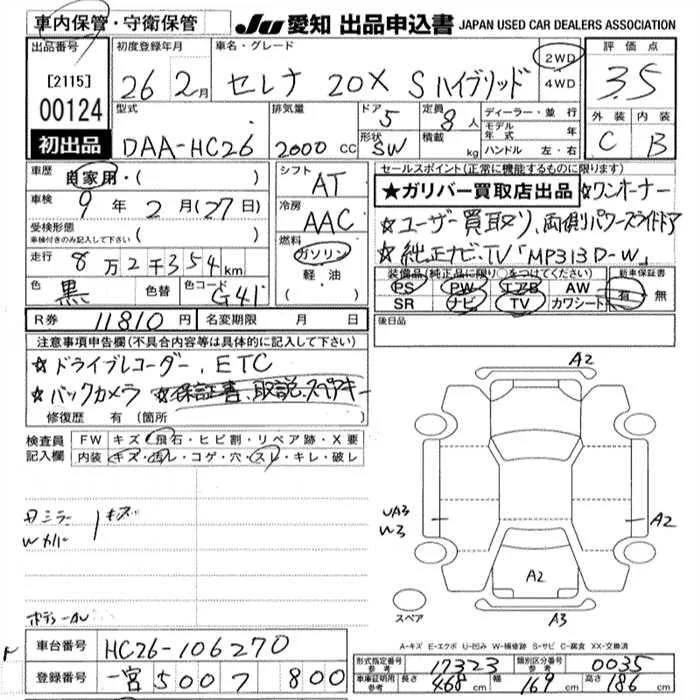 車内保管・守衛保管 JU 愛知 出品申込書 JAPAN USED CAR DEALERS ASSOCIATION
出品番号 初度登録年月 車名・グレード 評価点
[2115] 26 2月 セレナ 20X Sハイブリッド 2WD 4WD 3.5
00124 型式 排気量 ドア 5 定員 8人 ディーラー・並行 外装 内装
モデル年式 年
初出品 DAA-HC26 2000 CC 形状 SW 積載 kg ハンドル 左・右 C B
車歴 自家用・( ) シフト AT セールスポイント(正常に機能するものに限ります)
車検 9年2月(27日) 冷房 AAC ★ガリバー買取店出品 ☆ワンオーナー
受検形態 車検付きのみ記入して下さい ( ) ☆ユーザー買取り、両側パワースライドドア
走行 8万2千354km 燃料 ガソリン 軽・油 ☆純正ナビ、TV「MP313D-W」
色 黒 色替 色コード G41 装備品(純正品に限り○をつけてください) 新車保証書
PS PW エアB AW 有・無
SR ナビ TV カワシート
R券 11810円 名変期限 月 日 後日品
注意事項申告欄(不具合内容等は具体的に記入して下さい)
☆ドライブレコーダー、ETC
☆バックカメラ ☆保証書、取説、スペアキー
修復歴 有 (箇所 )
検査員記入欄 FW キズ・飛石・ヒビ割・リペア跡・X要
内装 キズ・汚レ・コゲ・穴・スレ・キレ・破レ
A2
UA3
W3
A2
A2
A3
スペア
ミラー
Wカバー
キズ
A-キズ E-エクボ U-凹み W-補修跡 S-サビ C-腐食 XX-交換済
車台番号 HC26-106270
登録番号 一宮 500 フ 800
形式指定番号 参考 17323 類別区分番号 参考 0035
車庫証明用 参考 長さ 468cm 幅 169cm 高さ 186cm